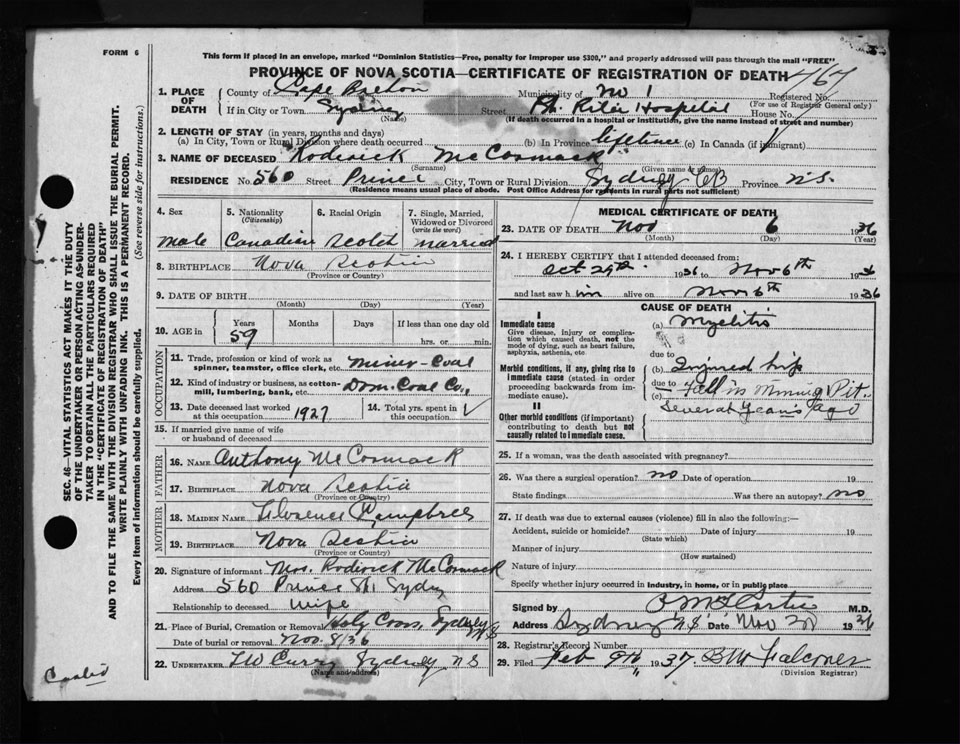 FORM 6
This form if placed in an envelope, marked "Dominion Statistics—Free, penalty for improper use $300," and properly addressed will pass through the mail "FREE"
PROVINCE OF NOVA SCOTIA—CERTIFICATE OF REGISTRATION OF DEATH
467
1. PLACE OF DEATH
County of Cape Breton Municipality of No 1 Registered No.
(For use of Registrar General only)
If in City or Town Sydney (Name) Street St. Rita Hospital House No.
(If death occurred in a hospital or institution, give the name instead of street and number)
2. LENGTH OF STAY (in years, months and days)
(a) In City, Town or Rural Division where death occurred (b) In Province lifetime (c) In Canada (if immigrant)
3. NAME OF DECEASED Roderick McCormack
(Surname) (Given name or names)
RESIDENCE No. 560 Street Prince City, Town or Rural Division Sydney CB Province N.S.
(Residence means usual place of abode. Post Office Address for residents in rural parts not sufficient)
4. Sex
male
5. Nationality (Citizenship)
Canadian
6. Racial Origin
Scotch
7. Single, Married, Widowed or Divorced (write the word)
married
8. BIRTHPLACE Nova Scotia
(Province or Country)
9. DATE OF BIRTH
(Month) (Day) (Year)
10. AGE in
Years Months Days If less than one day old
59 hrs. or min.
OCCUPATION
11. Trade, profession or kind of work as spinner, teamster, office clerk, etc. Miner-Coal
12. Kind of industry or business, as cotton-mill, lumbering, bank, etc. Dom. Coal Co.,
13. Date deceased last worked at this occupation 1927
14. Total yrs. spent in this occupation
15. If married give name of wife or husband of deceased
FATHER
16. NAME Anthony McCormack
17. BIRTHPLACE Nova Scotia
(Province or Country)
MOTHER
18. MAIDEN NAME Florence
19. BIRTHPLACE Nova Scotia
(Province or Country)
20. Signature of informant Mrs. Roderick McCormack
Address 560 Prince St. Sydney
Relationship to deceased Wife
21. Place of Burial, Cremation or Removal Holy Cross, Sydney N S
Date of burial or removal Nov. 8/36
22. UNDERTAKER T W Curry Sydney N S
(Name and address)
MEDICAL CERTIFICATE OF DEATH
23. DATE OF DEATH Nov 6 1936
(Month) (Day) (Year)
24. I HEREBY CERTIFY that I attended deceased from:
Oct 29th 1936 to Nov 6th 1936
and last saw him alive on Nov 6th 1936
CAUSE OF DEATH
I
Immediate cause
Give disease, injury or complication which caused death, not the mode of dying, such as heart failure, asphyxia, asthenia, etc
(a) Myelitis
due to
Morbid conditions, if any, giving rise to immediate cause (stated in order proceeding backwards from immediate cause).
(b) Injured hip
due to
(c) Fall in Mining Pit.
Several Years Ago
II
Other morbid conditions (if important) contributing to death but not causally related to immediate cause.
25. If a woman, was the death associated with pregnancy?
26. Was there a surgical operation? no Date of operation 19
State findings Was there an autopsy? no
27. If death was due to external causes (violence) fill in also the following:—
Accident, suicide or homicide? Date of injury 19
(State which)
Manner of injury
(How sustained)
Nature of injury
Specify whether injury occurred in industry, in home, or in public place
Signed by M.D.
Address Sydney N.S. Date Nov 1936
28. Registrar's Record Number
29. Filed Feb 1937. B W Falconer
(Division Registrar)
SEC. 46—VITAL STATISTICS ACT MAKES IT THE DUTY
OF THE UNDERTAKER OR PERSON ACTING AS UNDERTAKER
TO OBTAIN ALL THE PARTICULARS REQUIRED
IN THE "CERTIFICATE OF REGISTRATION OF DEATH"
AND TO FILE THE SAME WITH THE DIVISION REGISTRAR WHO SHALL ISSUE THE BURIAL PERMIT.
WRITE PLAINLY WITH UNFADING INK. THIS IS A PERMANENT RECORD.
Every item of information should be carefully supplied. (See reverse side for instructions.)